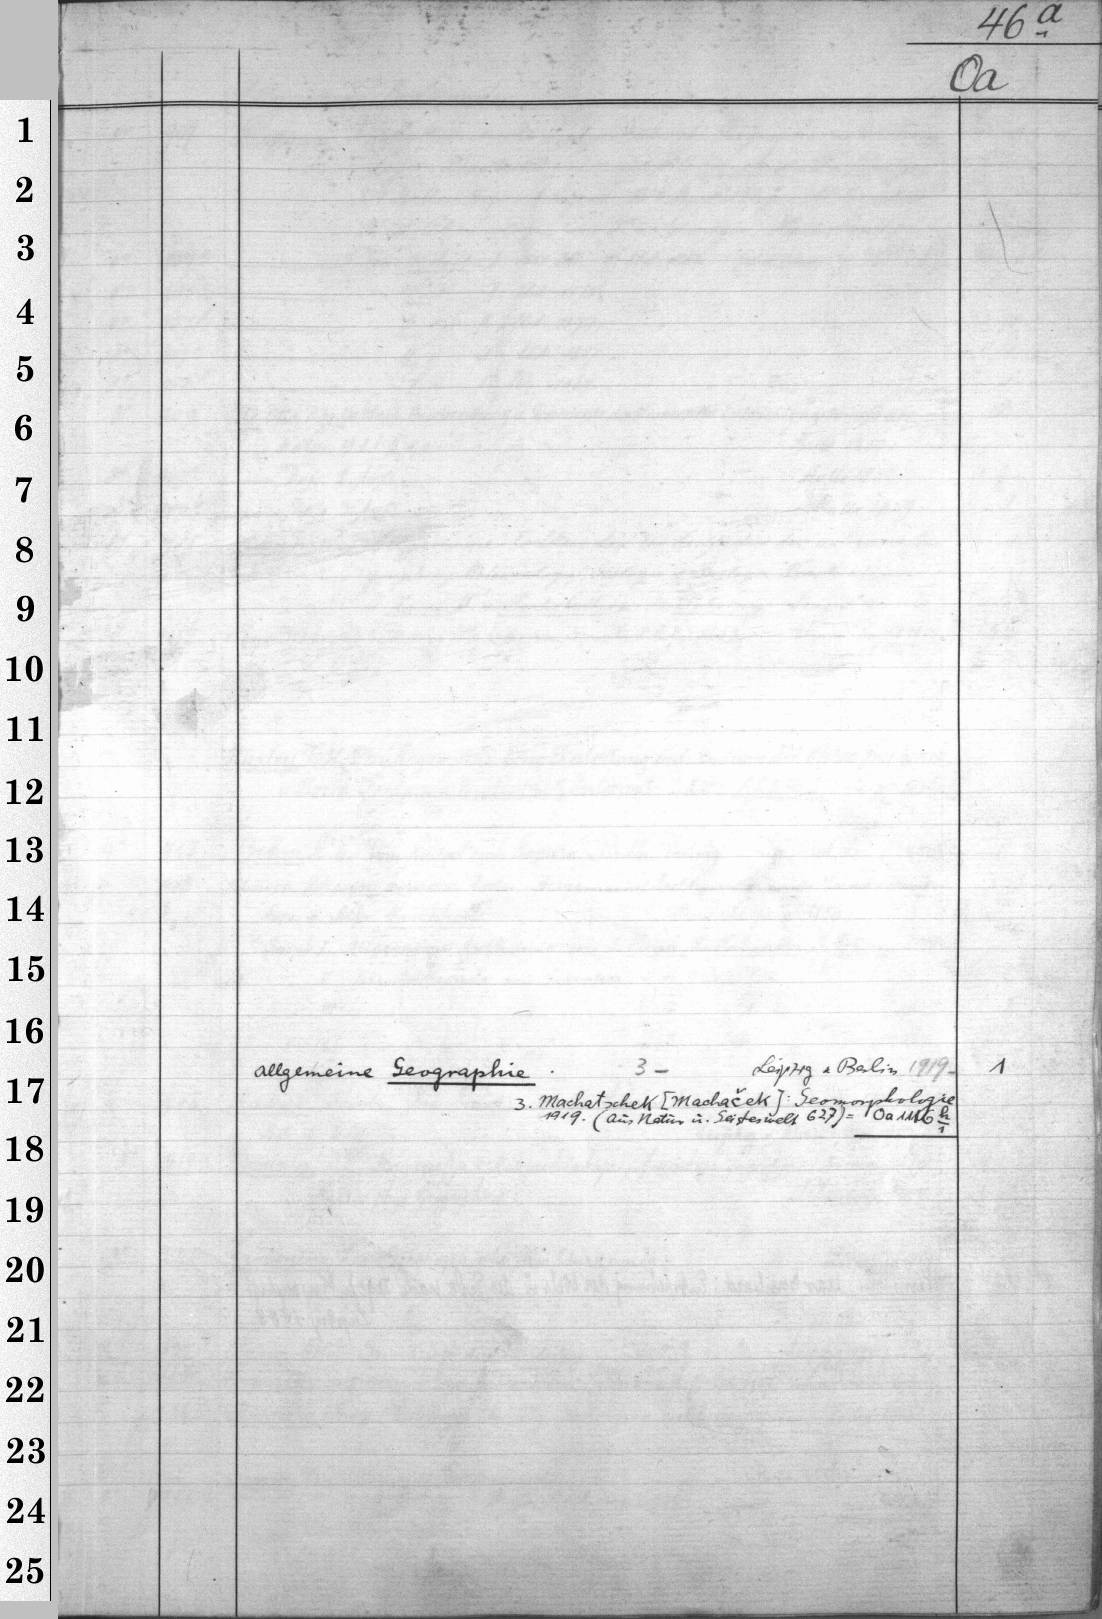 46 a
Oa
1
2
3
4
5
6
7
8
9
10
11
12
13
14
15
16
allgemeine Geographie. 3- Leipzig u Berlin 1919- 1
17
3. Machatschek [Machaček]: Geomorphologie
1919. (Aus Natur u. Geisteswelt 627) = Oa
18
19
20
21
22
23
24
25